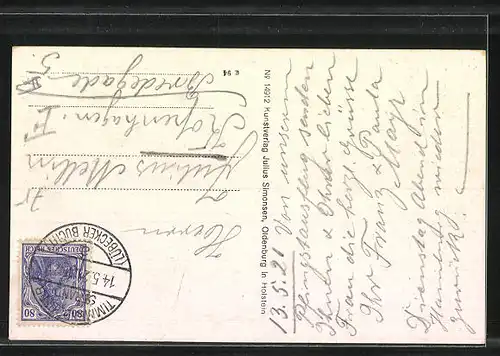 13.5.21 Von unserem
Pfingstausflug senden
Ihnen & Ihrer lieben
Frau die herzl. Grüsse
Ihr Franz & Paula
Mayr
Dienstag Abend in
wieder
zurück.
No 14912 Kunstverlag Julius Simonsen, Oldenburg in Holstein
K 94
Herrn
Julius
Kopenhagen. K
Bredegade
5.
DEUTSCHES REICH
80 80
TIMM
14.5.21
(LÜBECKER BUCHT